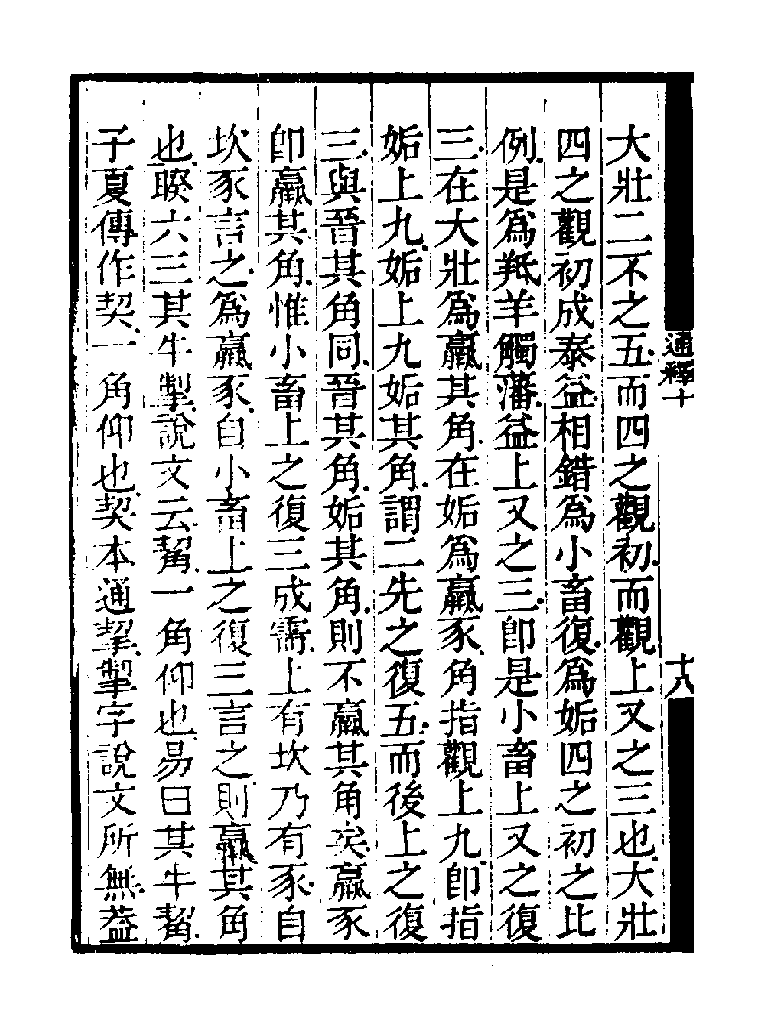 大壯二不之五而四之觀初而觀上又之三也大壯
四之觀初成泰益相錯爲小畜復爲姤四之初之比
例是爲羝羊觸藩益上又之三卽是小畜上又之復
三在大壯爲羸其角在姤爲羸豕角指觀上九卽指
姤上九姤上九姤其角謂二先之復五而後上之復
三與晉其角同晉其角姤其角則不羸其角矣羸豕
卽羸其角惟小畜上之復三成需上有坎乃有豕自
坎豕言之爲羸豕自小畜上之復三言之則羸其角
也睽六三其牛掣說文云觢一角仰也易曰其牛觢
子夏傳作契一角仰也契本通挈掣字說文所無葢
通釋十
十八